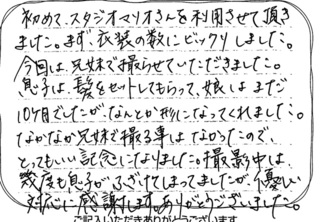 初めて、スタジオマリオさんを利用させて頂き
ました。まず、衣装の数にビックリしました。
今回は兄妹で撮らせていただきました。
息子は、髪をセットしてもらって、娘はまだ
10ヶ月でしたが、なんとか形になってくれました。
なかなか兄妹で撮る事はなかったので、
とってもいい記念になりました。撮影中は、
幾度も息子がふざけてしまってましたが、優しい
対応に感謝します。ありがとうございました。
ご記入いただきありがとうございます